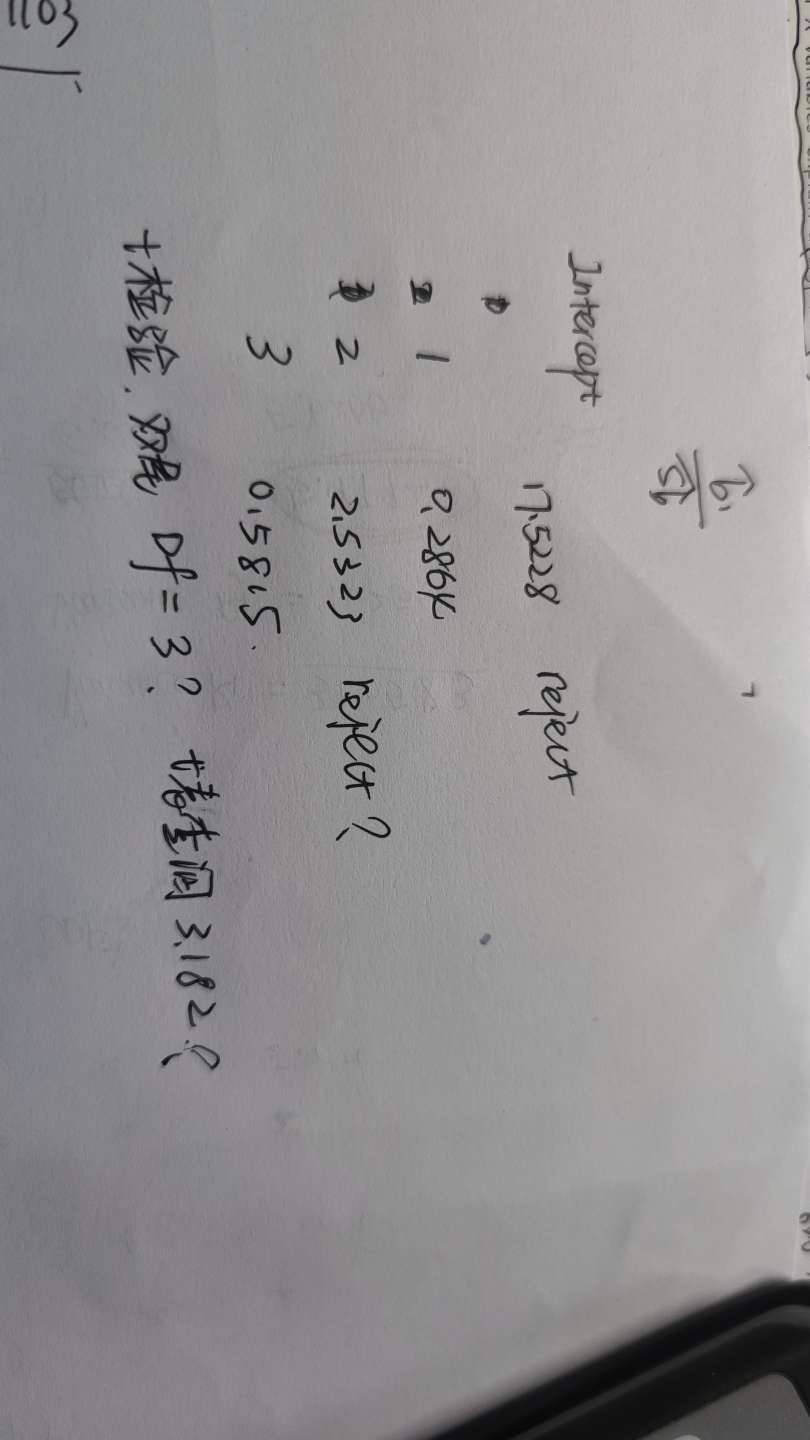 b̂₁
sb̂
Intercept 17.5228 reject
1 0.2864
2 2.5323 reject?
3 0.5815.
t检验.双尾 Df=3? t表查阅3.182?